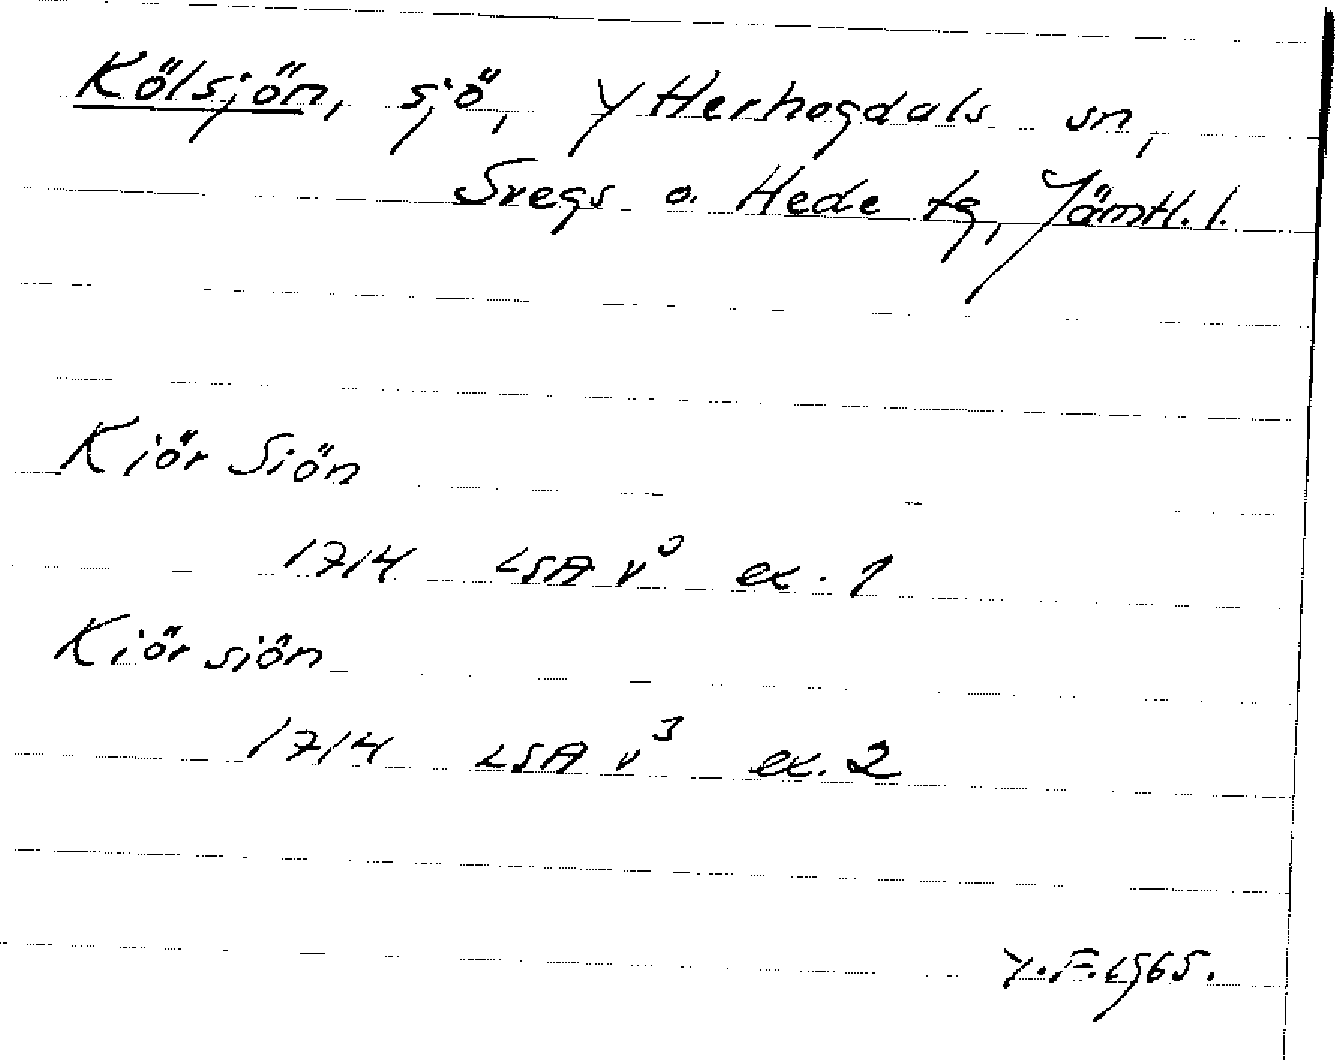 Kölsjön, sjö, Ytterhogdals sn,
Svegs o. Hede tg, Jämtl. l.
Kiör Siön
1714 LSA v³ ex. 1
Kiör siön
1714 LSA v³ ex. 2
Y.F. 1965.